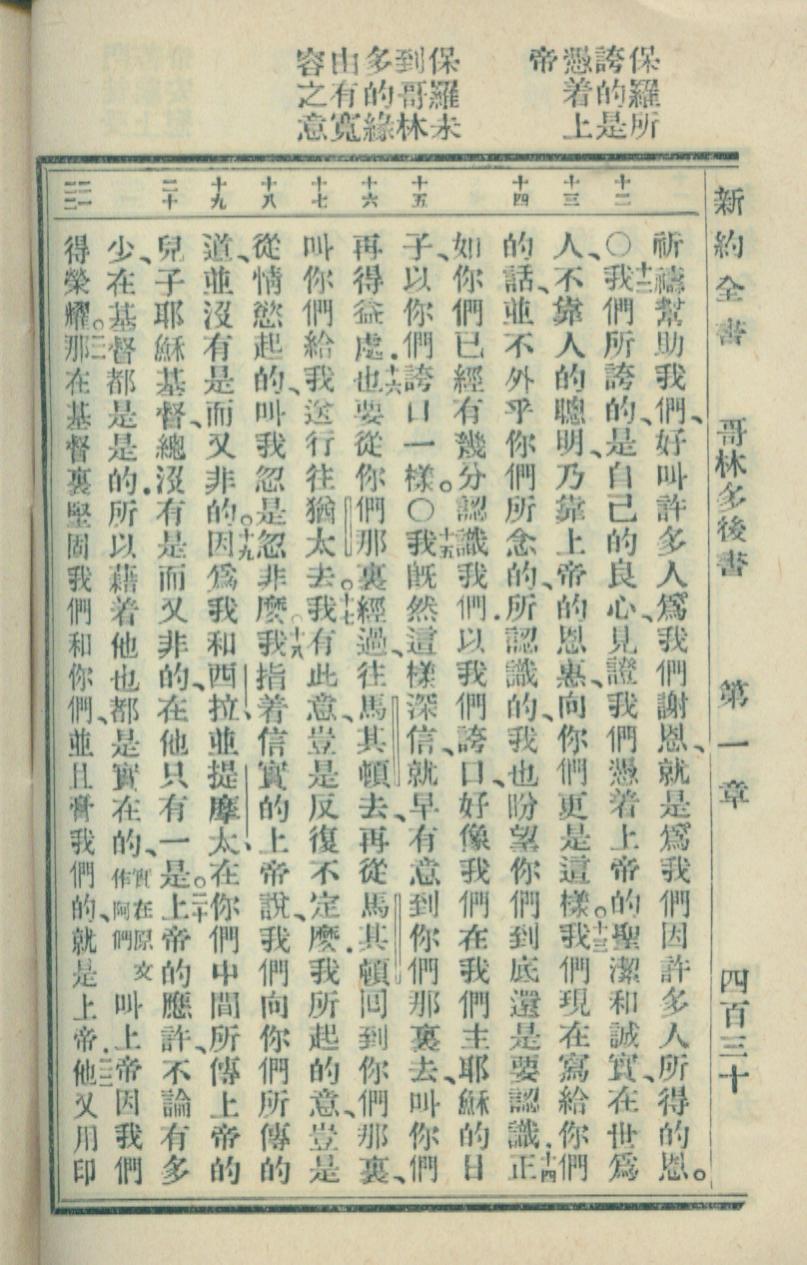 保羅所
誇的是
憑着上
帝
保羅未
到哥林
多的緣
由有寬
容之意
新約全書　哥林多後書　第一章　四百三十
祈禱幫助我們、好叫許多人爲我們謝恩、就是爲我們因許多人所得的恩。
十二
〇十二我們所誇的、是自己的良心、見證我們憑着上帝的聖潔和誠實、在世爲
十三
人、不靠人的聰明、乃靠上帝的恩惠、向你們更是這樣。十三我們現在寫給你們
十四
的話、並不外乎你們所念的、所認識的、我也盼望你們到底還是要認識．十四正
如你們已經有幾分認識我們．以我們誇口、好像我們在我們主耶穌的日
十五
子、以你們誇口一樣。〇十五我既然這樣深信、就早有意到你們那裏去、叫你們
十六
再得益處．十六也要從你們那裏經過、往馬其頓去、再從馬其頓回到你們那裏、
十七
叫你們給我送行往猶太去。十七我有此意、豈是反復不定麽．我所起的意、豈是
十八
從情慾起的、叫我忽是忽非麽。十八我指着信實的上帝說、我們向你們所傳的
十九
道、並沒有是而又非的。十九因爲我和西拉、並提摩太、在你們中間所傳上帝的
二十
兒子耶穌基督、總沒有是而又非的、在他只有一是。二十上帝的應許、不論有多
少、在基督都是是的．所以藉着他也都是實在的、實在原文作阿們叫上帝因我們
二一
二二
得榮耀。二一那在基督裏堅固我們和你們、並且膏我們的、就是上帝．二二他又用印